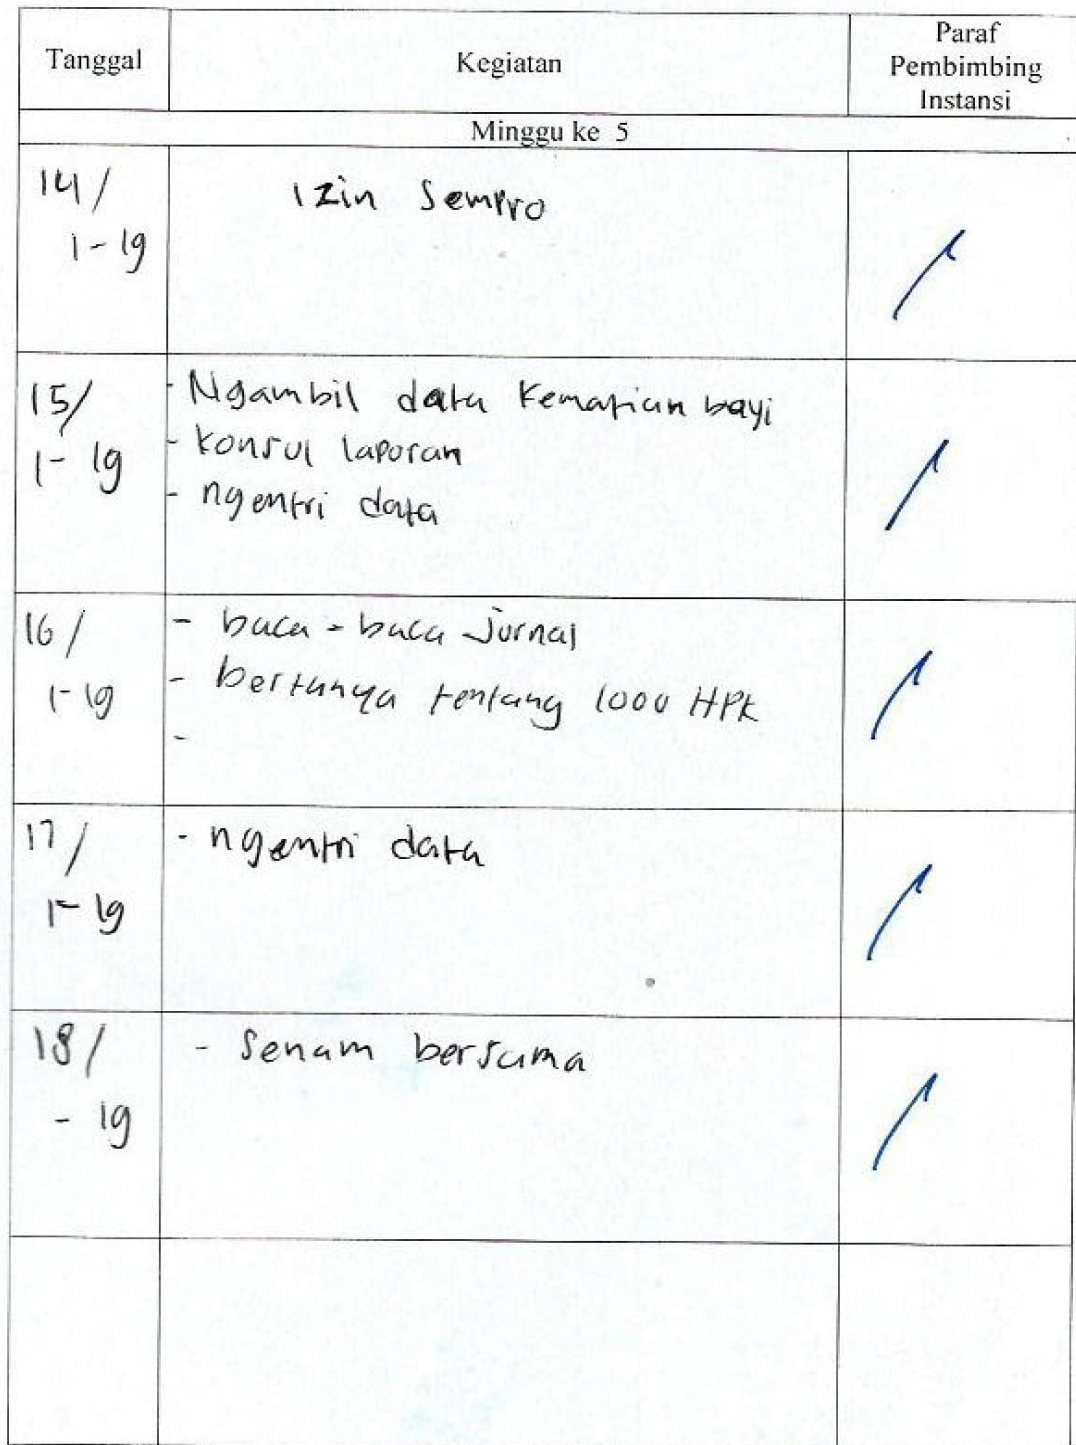 Tanggal
Kegiatan
Paraf
Pembimbing
Instansi
Minggu ke 5
14/
1-19
Izin Sempro
15/
1-19
- Ngambil data kematian bayi
- konsul laporan
- ngentri data
16/
1-19
- baca - baca Jurnal
- bertanya tentang 1000 HPK
-
17/
1-19
- ngentri data
18/
- 19
- Senam bersama